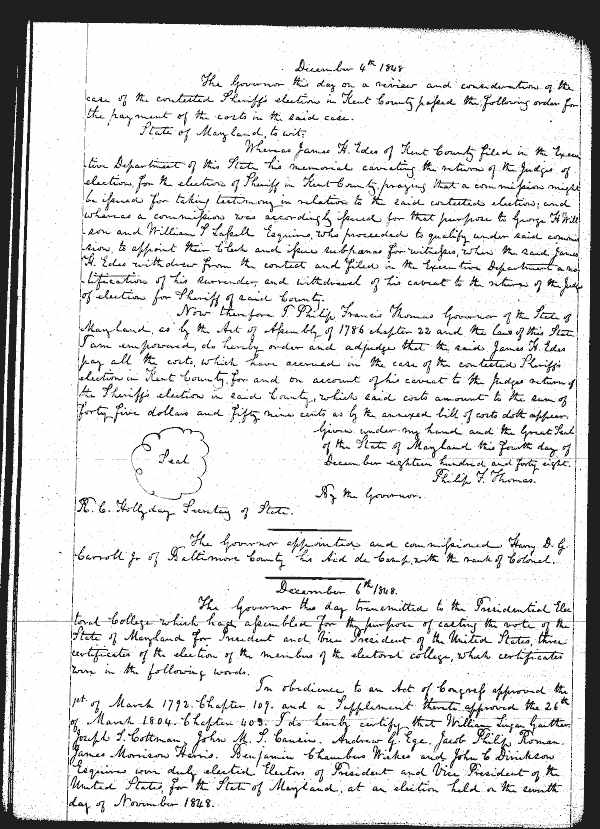 December 4th 1848
The Governor this day on a review and consideration of the
case of the contested Sheriff's election in Kent County passed the following order for
the payment of the costs in the said case.
State of Maryland, to wit;
Whereas James H. Edes of Kent County filed in the Execu
tive Department of this State his memorial caveating the return of the Judges of
election for the election of Sheriff in Kent County, praying that a commission might
be issued for taking testimony in relation to the said contested election; and
whereas a commission was accordingly issued for that purpose to George H. Will
son and William S. Lassell Esquires, who proceeded to qualify under said commis
sion, to appoint their Clerk and issue subpœnas for witnesses, when the said James
H. Edes withdrew from the contest and filed in the Executive Department a no
tification of his surrender, and withdrawal of his caveat to the return of the Judges
of election for Sheriff of said County.
Now therefore I Philip Francis Thomas Governor of the State of
Maryland, as by the Act of Assembly of 1786 chapter 22 and the laws of this State
I am empowered, do hereby order and adjudge that the said James H. Edes
pay all the costs, which have accrued in the case of the contested Sheriff's
election in Kent County, for and on account of his caveat to the Judges return of
the Sheriff's election in said County, which said costs amount to the sum of
forty five dollars and fifty nine cents as by the annexed bill of costs doth appear.
Given under my hand and the Great Seal
of the State of Maryland this fourth day of
December eighteen hundred and forty eight.
Philip F. Thomas.
Seal
By the Governor.
R. C. Hollyday Secretary of State.
The Governor appointed and commissioned Harry D. G.
Carroll Jr of Baltimore County his Aid de Camp, with the rank of Colonel.
December 6th 1848.
The Governor this day transmitted to the Presidential Elec
toral College which had assembled for the purpose of casting the vote of the
State of Maryland for President and Vice President of the United States, three
certificates of the election of the members of the electoral college, which certificates
were in the following words.
In obedience to an Act of Congress approved the
1st of March 1792. Chapter 109. and a Supplement thereto approved the 26th
of March 1804. Chapter 403. I do hereby certify that William Gaither
Joseph S. Cottman, John M. S. Causin, Andrew G. Ege, Jacob Philip Roman
James Morrison Harris, Benjamin Chambers Wickes and John C Dirickson
Esquires were duly elected Electors of President and Vice President of the
United States, for the State of Maryland, at an election held on the seventh
day of November 1848.